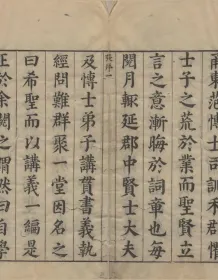 東范博士司訓和郡
士子之荒於業而聖賢立
言之意漸晦於詞章也每
閱月輒延郡中賢士大夫
序一
及博士弟子講貫書義執
經問難群聚一堂因名之
曰希聖而以講義一編是
正於余閱之喟然曰自學